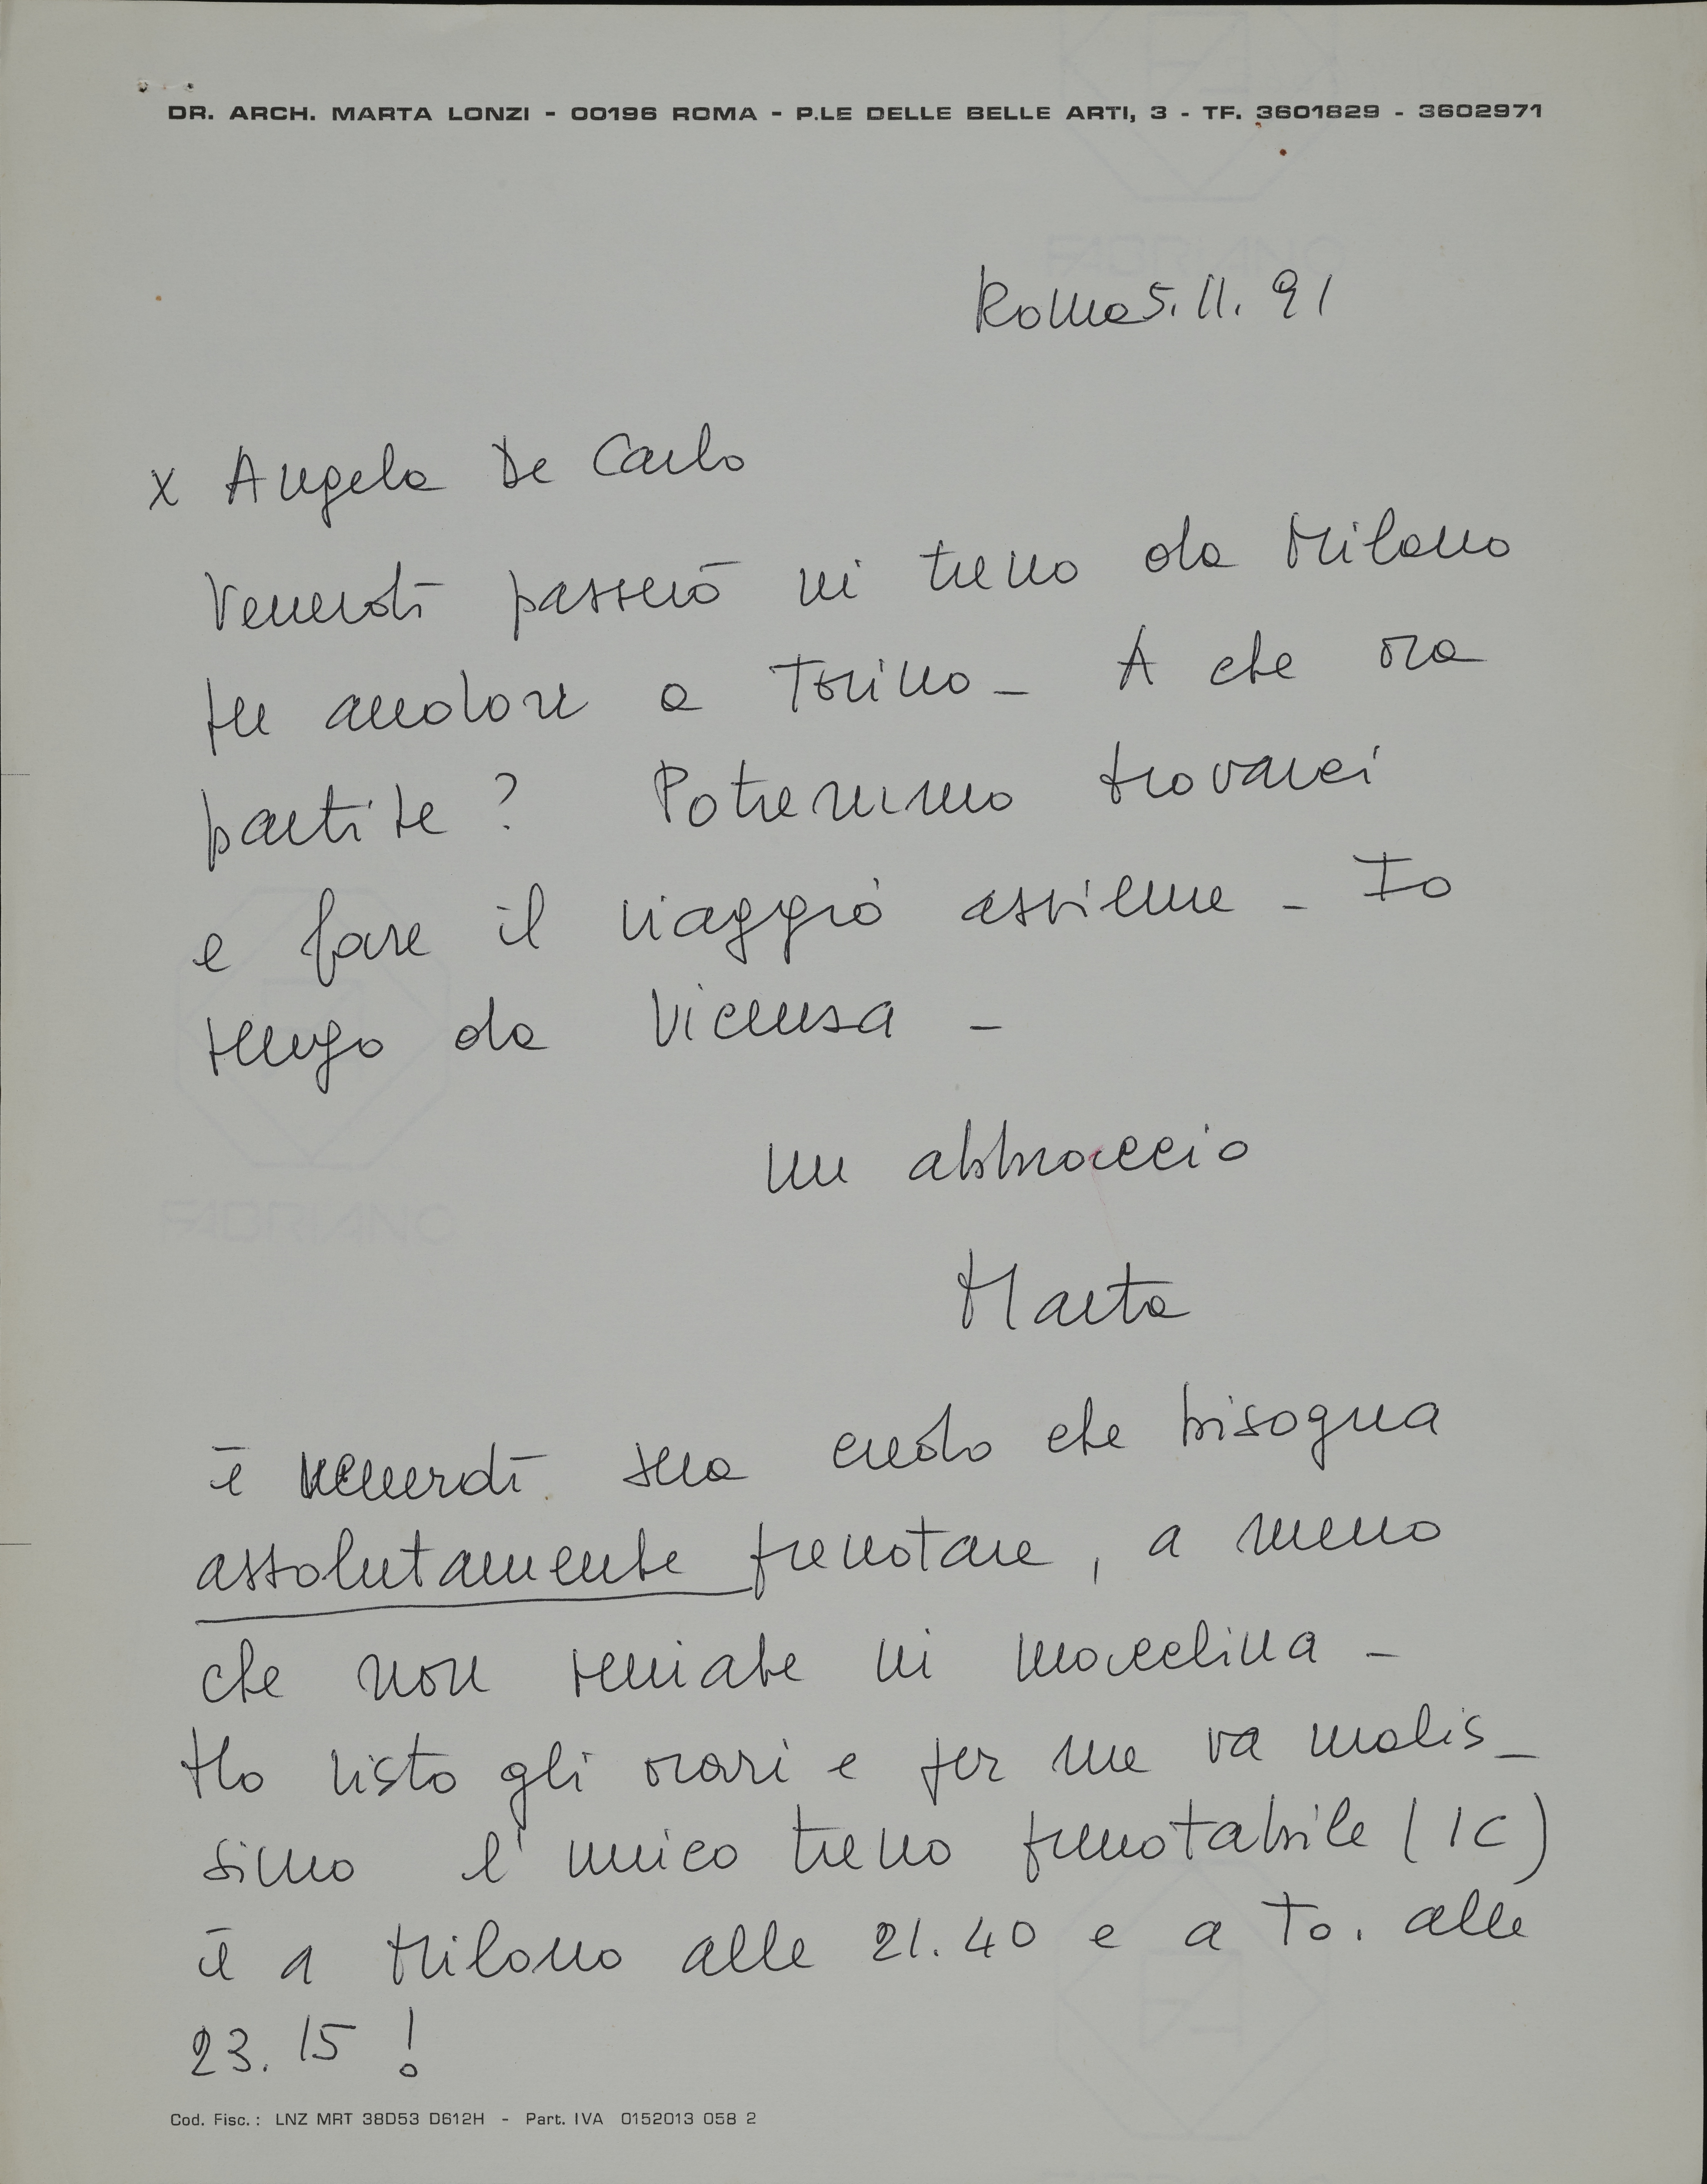 DR. ARCH. MARTA LONZI - 00196 ROMA - P.LE DELLE BELLE ARTI, 3 - TF. 3601829 - 3602971
Roma 5.11.91
x Angela De Carlo
Venerdì passerò in treno da Milano
per andare a Torino - A che ora
partite? Potremmo trovarci
e fare il viaggio assieme - Io
vengo da Vicenza -
un abbraccio
Marta
è venerdì sera credo che bisogna
assolutamente prenotare, a meno
che non veniate in macchina -
Ho visto gli orari e per me va malis-
simo l'unico treno prenotabile (IC)
è a Milano alle 21.40 e a To. alle
23.15!
Cod. Fisc.: LNZ MRT 38D53 D612H - Part. IVA 0152013 058 2
FABRIANO
FABRIANO